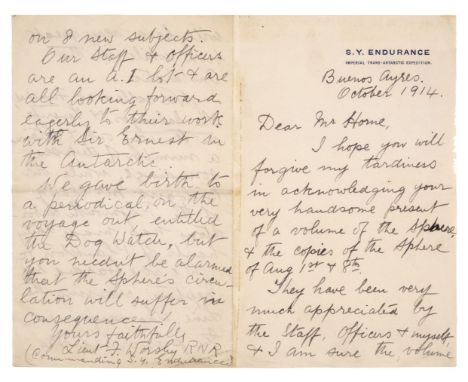 S.Y. ENDURANCE
IMPERIAL TRANS-ANTARCTIC EXPEDITION.
Buenos Ayres.
October 1914.
Dear Mr Home,
I hope you will
forgive my tardiness
in acknowledging your
very handsome present
of a volume of the Sphere,
& the copies of the Sphere
of Aug 1st & 8th.
They have been very
much appreciated by
the Staff, Officers & myself,
& I am sure the volume
on 8 new subjects.
Our Staff & Officers
are an A.1 lot & are
all looking forward
eagerly to their work
with Sir Ernest in
the Antarctic.
We gave birth to
a periodical, on the
voyage out, entitled
the Dog Watch, but
you needn't be alarmed
that the Sphere's circu-
lation will suffer in
consequence!
Yours faithfully
Lieut F. Worsley RNR
(Commanding S.Y. Endurance)